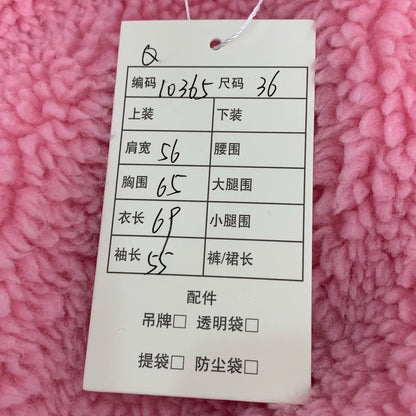 Q
编码 10365 尺码 36
上装 下装
肩宽 56 腰围
胸围 65 大腿围
衣长 69 小腿围
袖长 55 裤/裙长
配件
吊牌□ 透明袋□
提袋□ 防尘袋□